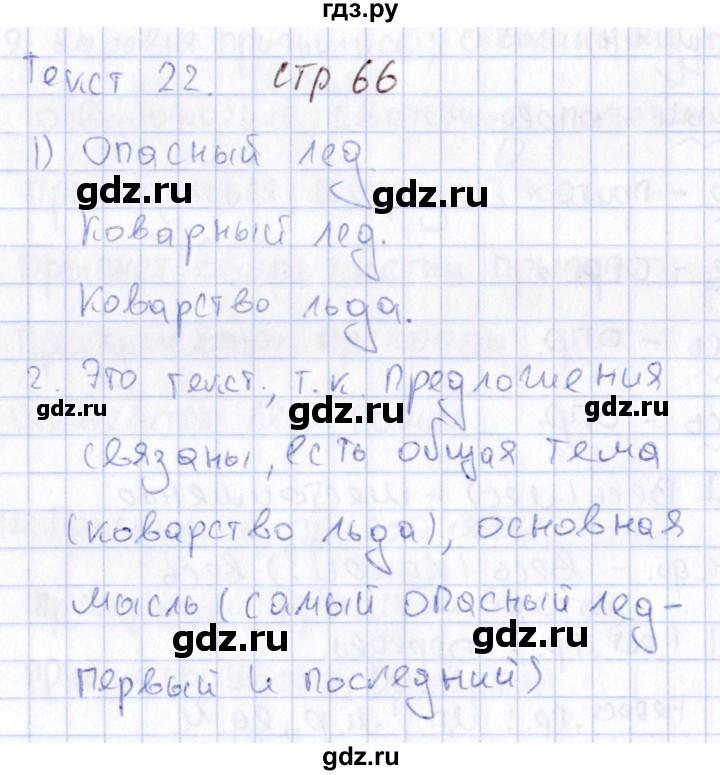 гдз.ру
Текст 22. стр 66
1) Опасный лед.
gdz.ru gdz.ru
Коварный лед.
Коварство льда.
2. Это текст, т.к. предложения
gdz.ru gdz.ru gdz.ru
связаны, есть общая тема
(коварство льда), основная
мысль (самый опасный лед -
gdz.ru gdz.ru
первый и последний)
gdz.ru